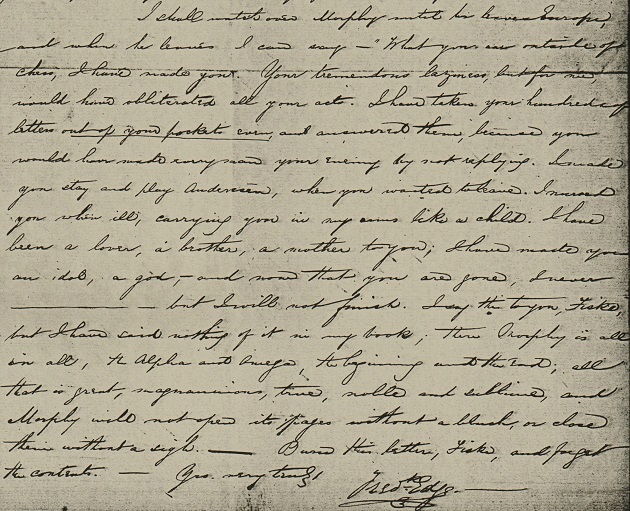 I shall watch over Morphy until he leaves Europe,
and when he leaves I can say — "What you are outside of
chess, I have made you. Your tremendous laziness, but for me
would have obliterated all your acts. I have taken your hundreds of
letters out of your pockets even, and answered them, because you
would have made every man your enemy by not replying. I made
you stay and play Anderssen, when you wanted to leave. I nursed
you when ill, carrying you in my arms like a child. I have
been a lover, a brother, a mother to you; I have made you
an idol, a god, — and now that you are gone, I never
———— — but I will not finish. I say this to you, Fiske,
but I have said nothing of it in my book; there Morphy is all
in all, the Alpha and Omega, the beginning and the End, all
that is great, magnanimous, true, noble and sublime, and
Morphy will not open its pages without a blush, or close
them without a sigh. — Burn this letter, Fiske, and forget
the contents. — Yrs. very truly
Fredk. Edge —